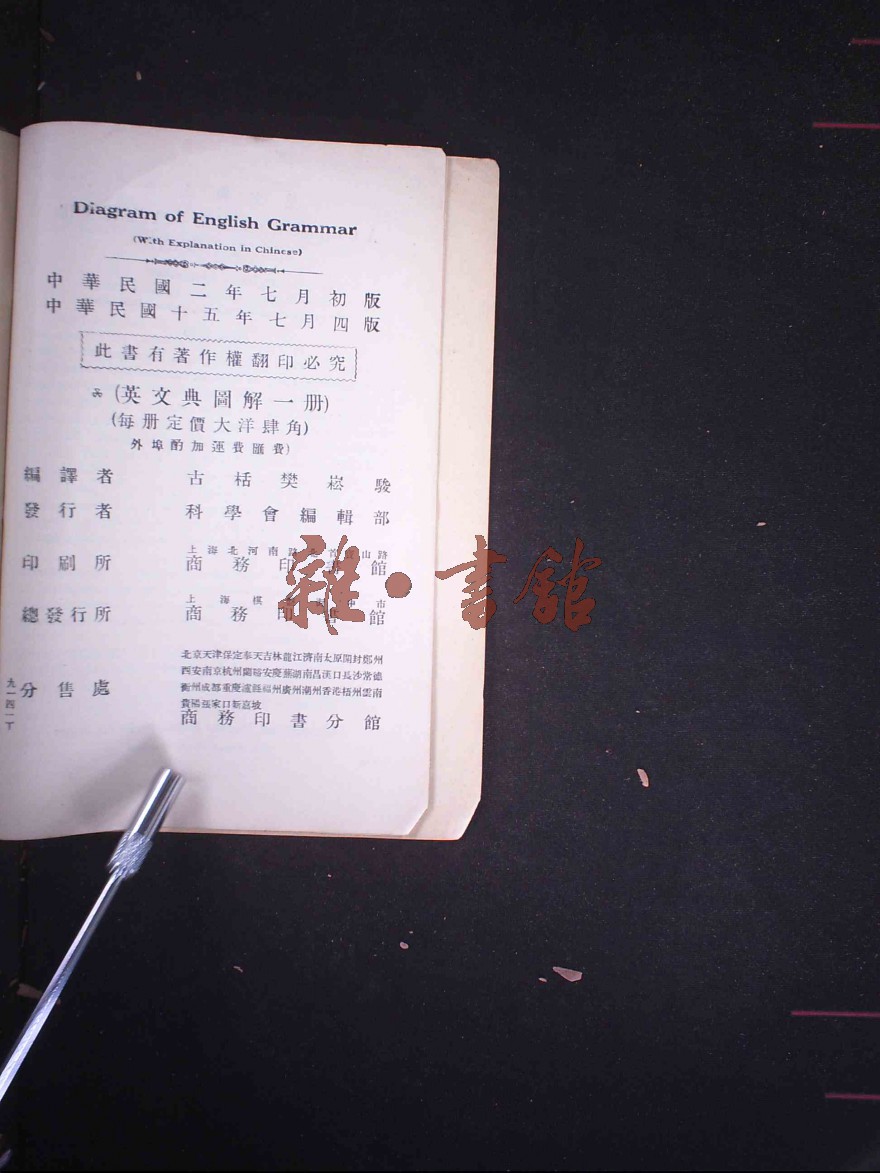 Diagram of English Grammar
(With Explanation in Chinese)
中華民國二年七月初版
中華民國十五年七月四版
此書有著作權翻印必究
(英文典圖解一册)
(每册定價大洋肆角)
外埠酌加運費匯費)
編譯者 古栝樊崧駿
發行者 科學會編輯部
上海北河南路 山路
印刷所 商務印書館
上海棋 市
總發行所 商務印書館
北京天津保定奉天吉林龍江濟南太原開封鄭州
西安南京杭州蘭谿安慶蕪湖南昌漢口長沙常德
分售處 衡州成都重慶瀘縣福州廣州潮州香港梧州雲南
貴陽張家口新嘉坡
商務印書分館
九一四一丁
雜·書館